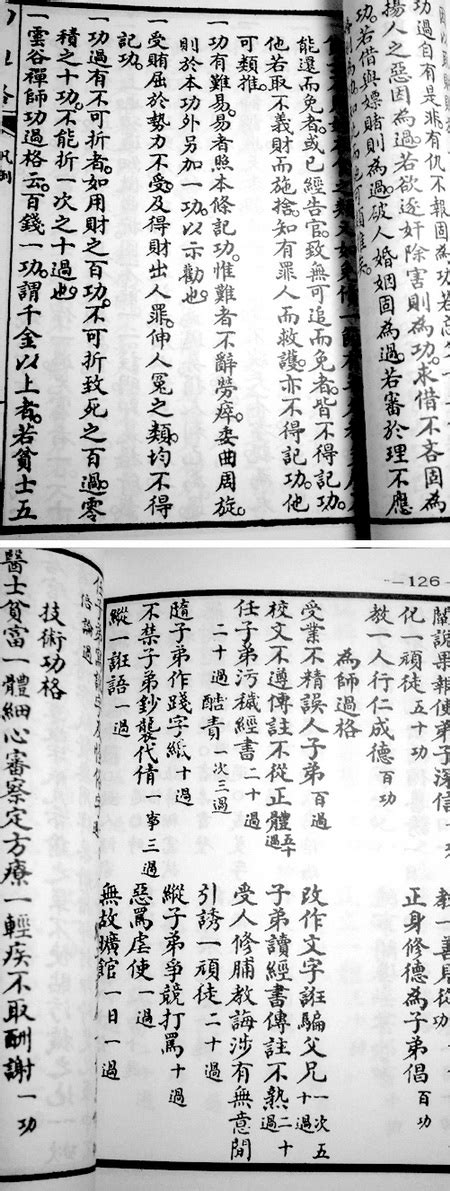 功過自有是非。有仇不報固為功。若忘
揚人之惡因為過。若欲逐奸除害則為功。求借不吝固為
功。若借與嫖賭則為過。破人婚姻固為過。若審於理不應
能還而免者。或已經告官。致無可追而免者。皆不得記功。
他若取不義財而施捨。知有罪人而救護。亦不得記功。他
可類推。
一功有難易。易者照本條記功。惟難者不辭勞瘁。委曲周旋。
則於本功外另加一功。以示勸也。
一受賄屈於勢力不受。及得財出人罪。伸人冤之類。均不得
記功。
一功過有不可折者。如用財之百功。不可折致死之百過。零
積之十功。不能折一次之十過也。
一雲谷禪師功過格云。百錢一功。謂千金以上者。若貧士五
凡例
—126—
關說果報使弟子深信 一功
化一頑徒 五十功
教一人行仁成德 百功
教一善見從功
正身修德為子弟倡 百功
為師過格
受業不精誤人子弟 百過
校文不遵傳註不從正體 五十過
任子弟污穢經書 二十過
二十過 酷責 一次三過
隨子弟作踐字紙 十過
不禁子弟鈔襲代倩 一事三過
縱一誑語 一過
改作文字誑騙父兄 一次五十過
子弟讀經書傳註不熟 二十過
受人修脯教誨涉有無意間
引誘一頑徒 二十過
縱子弟爭競打罵 十過
惡罵虐使 一過
無故曠館 一日一過
倍論過
技術功格
醫士貧富一體細心審察定方療一輕疾不取酬謝 一功